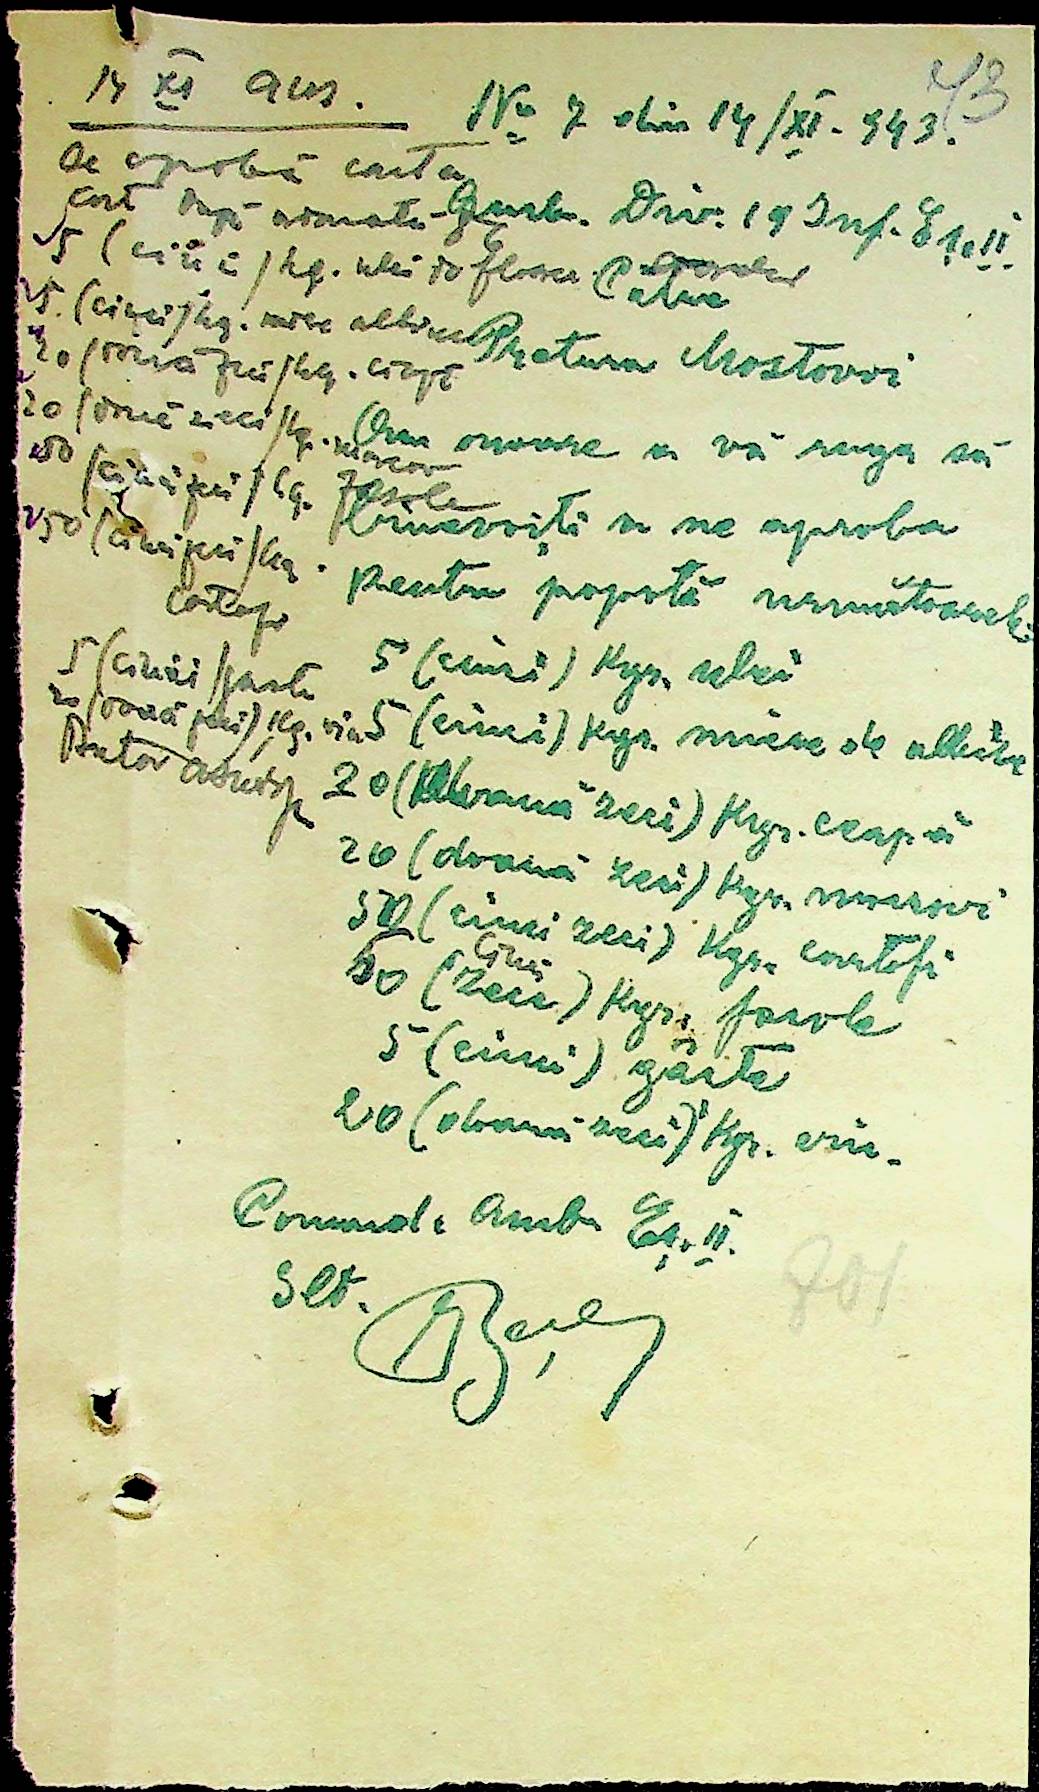 73
14 XI aus.
Se aprobă contra
cost după normele
5 (cinci) kg. ulei de floarea
5 (cinci) kg. miere albine
20 (două zeci) kg. ceapă
20 (două zeci) kg. morcov
50 (cinci zeci) kg. fasole
50 (cinci zeci) kg.
cartofi
5 (cinci) gaste
20 (două zeci) kg. vin
Pretor
No 7 din 14/XI-943.
Amb. Div. 19 Inf. Eș. II
Catre
Pretura Mostovoi
Am onoare a vă ruga să
binevoiți a ne aproba
pentru popotă următoarele:
5 (cinci) Kgr. ulei
5 (cinci) Kgr. miere de albine
20 (douuă zeci) Kgr. ceapă
20 (douuă zeci) Kgr. morcovi
50 (cinci zeci) Kgr. cartofi
50 (cinci zeci) Kgr. fasole
5 (cinci) gâște
20 (douuă zeci) Kgr. vin.
Comand. Amb. Eș. II.
Slt.
801